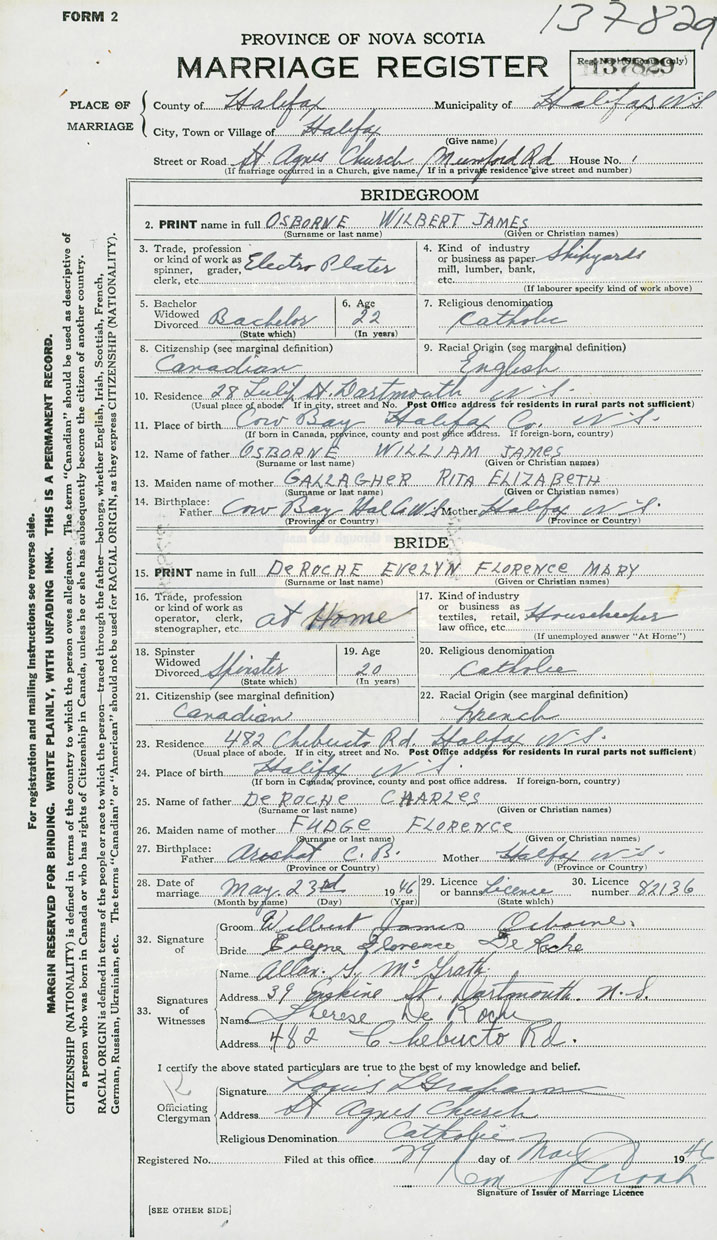 FORM 2
137829
PROVINCE OF NOVA SCOTIA
MARRIAGE REGISTER
137829
PLACE OF MARRIAGE
County of Halifax Municipality of Halifax N S
City, Town or Village of Halifax
(Give name)
Street or Road St. Agnes Church Mumford Rd House No.
(If marriage occurred in a Church, give name. If in a private residence give street and number)
BRIDEGROOM
2. PRINT name in full OSBORNE WILBERT JAMES
(Surname or last name) (Given or Christian names)
3. Trade, profession or kind of work as spinner, grader, clerk, etc. Electro Plater
4. Kind of industry or business as paper mill, lumber, bank, etc. Shipyards
(If labourer specify kind of work above)
5. Bachelor Widowed Divorced Bachelor
(State which)
6. Age 22
(In years)
7. Religious denomination Catholic
8. Citizenship (see marginal definition) Canadian
9. Racial Origin (see marginal definition) English
10. Residence 28 Lily St. Dartmouth N. S.
(Usual place of abode. If in city, street and No. Post Office address for residents in rural parts not sufficient)
11. Place of birth Cow Bay Halifax Co. N. S.
(If born in Canada, province, county and post office address. If foreign-born, country)
12. Name of father OSBORNE WILLIAM JAMES
(Surname or last name) (Given or Christian names)
13. Maiden name of mother GALLAGHER RITA ELIZABETH
(Surname or last name) (Given or Christian names)
14. Birthplace: Father Cow Bay Hal Co N.S. Mother Halifax N. S.
(Province or Country) (Province or Country)
BRIDE
15. PRINT name in full DeROCHE EVELYN FLORENCE MARY
(Surname or last name) (Given or Christian names)
16. Trade, profession or kind of work as operator, clerk, stenographer, etc. at Home
17. Kind of industry or business as textiles, retail, law office, etc. Housekeeper
(If unemployed answer "At Home")
18. Spinster Widowed Divorced Spinster
(State which)
19. Age 20
(In years)
20. Religious denomination Catholic
21. Citizenship (see marginal definition) Canadian
22. Racial Origin (see marginal definition) French
23. Residence 482 Chebucto Rd. Halifax N. S.
(Usual place of abode. If in city, street and No. Post Office address for residents in rural parts not sufficient)
24. Place of birth Halifax N. S.
(If born in Canada, province, county and post office address. If foreign-born, country)
25. Name of father DeROCHE CHARLES
(Surname or last name) (Given or Christian names)
26. Maiden name of mother FUDGE FLORENCE
(Surname or last name) (Given or Christian names)
27. Birthplace: Father Arichat C. B. Mother Halifax N. S.
(Province or Country) (Province or Country)
28. Date of marriage May 23rd 1946
(Month by name) (Day) (Year)
29. Licence or banns License
(State which)
30. Licence number 82136
32. Signature of
Groom Wilbert James Osborne.
Bride Evelyn Florence DeRoche
33. Signatures of Witnesses
Name Allan. McGrath
Address 39 Erskine St. Dartmouth. N. S.
Name Therese De Roche
Address 482 Chebucto Rd.
I certify the above stated particulars are true to the best of my knowledge and belief.
Officiating Clergyman
Signature Louis Graham
Address St Agnes Church
Religious Denomination Catholic
Registered No. Filed at this office 29 day of May 1946
Signature of Issuer of Marriage Licence
[SEE OTHER SIDE]
For registration and mailing instructions see reverse side.
MARGIN RESERVED FOR BINDING. WRITE PLAINLY, WITH UNFADING INK. THIS IS A PERMANENT RECORD.
CITIZENSHIP (NATIONALITY) is defined in terms of the country to which the person owes allegiance. The term "Canadian" should be used as descriptive of
a person who was born in Canada or who has rights of Citizenship in Canada, unless he or she has subsequently become the citizen of another country.
RACIAL ORIGIN is defined in terms of the people or race to which the person—traced through the father—belongs, whether English, Irish, Scottish, French,
German, Russian, Ukrainian, etc. The terms "Canadian" or "American" should not be used for RACIAL ORIGIN, as they express CITIZENSHIP (NATIONALITY).